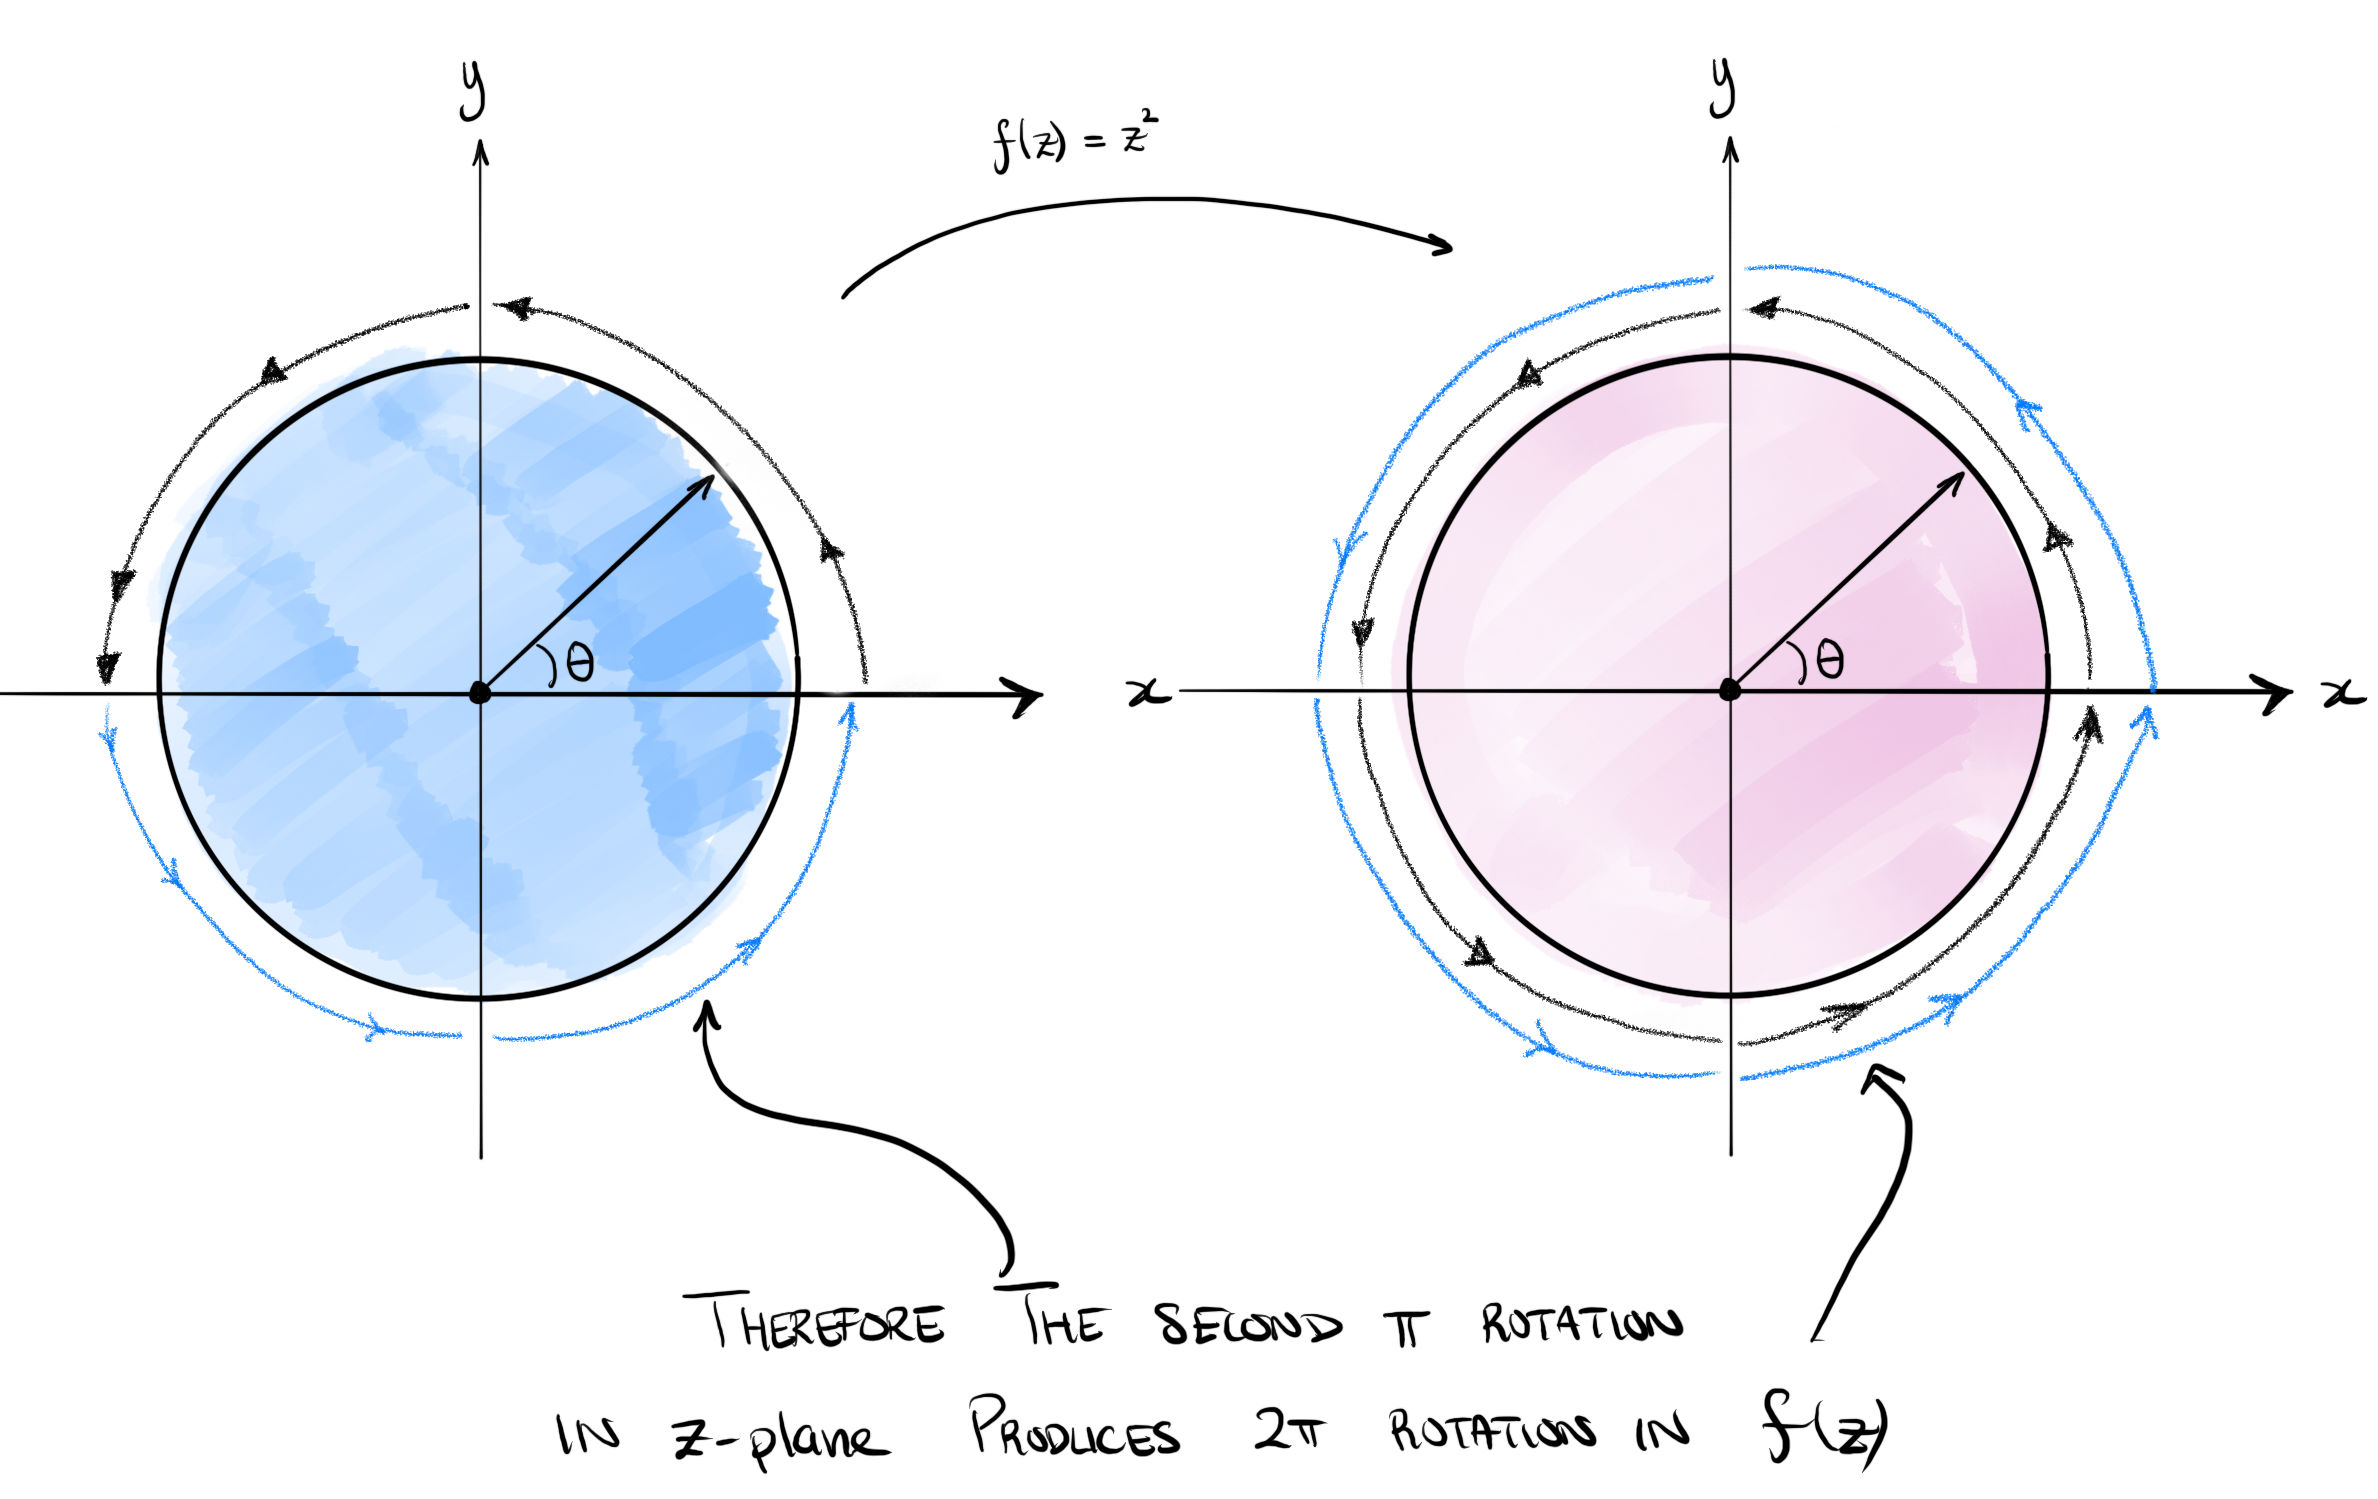 y
y
f(z) = z²
θ
θ
x
x
THEREFORE THE SECOND π ROTATION
IN z-plane PRODUCES 2π ROTATION IN f(z)